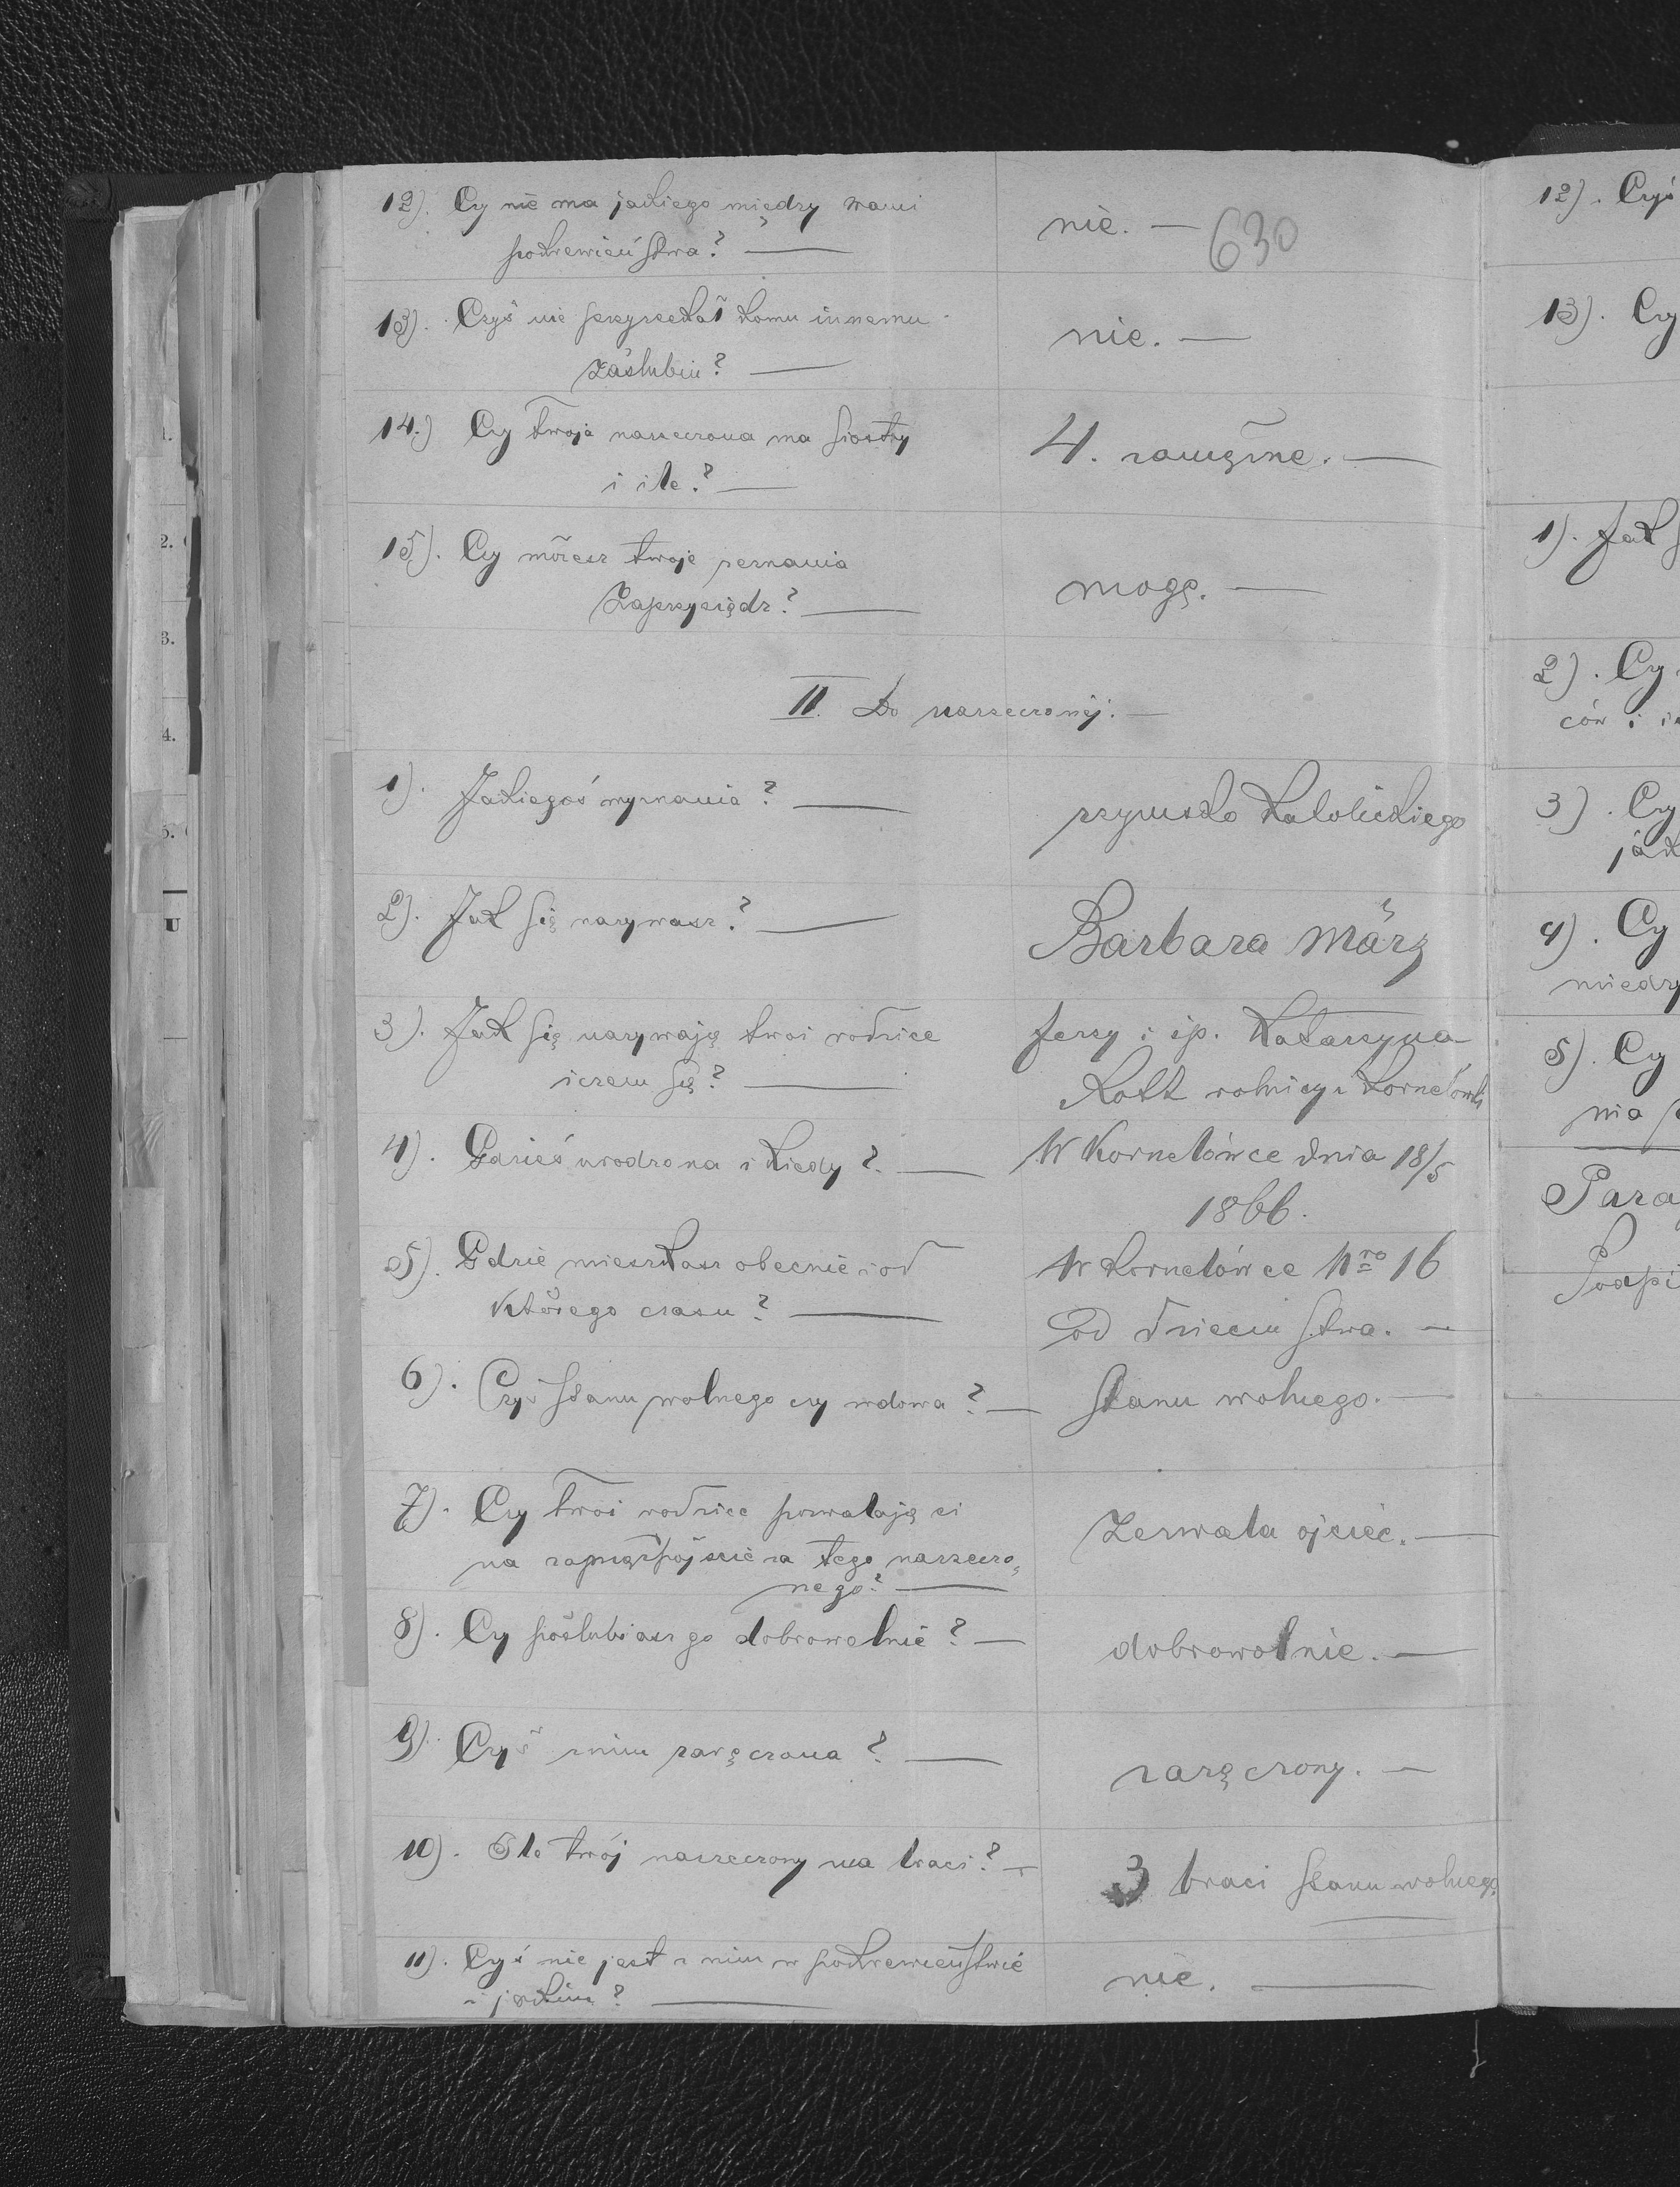 12). Czy nie ma jakiego między wami
pokrewieństwa? — nie. — 630
13). Czyś nie przyrzekał komu innemu
zaślubin? — nie. —
14.) Czy twoja narzeczona ma siostry
i ile? — 4. zamężne. —
15). Czy możesz twoje zeznania
zaprzysiędz? — mogę. —
II. Do narzeczonej. —
1). Jakiegoś wyznania? — rzymsko katolickiego
2). Jak się nazywasz? — Barbara März
3). Jak się nazywają twoi rodzice
i czem są? — Jerzy i śp. Katarzyna
Kott rolnicy z Kornelówki
4). Gdzieś urodzona i kiedy? — W Kornelówce dnia 18/5
1866.
5). Gdzie mieszkasz obecnie i od
którego czasu? — W Kornelówce Nro 16
od dzieciństwa. —
6). Czyś stanu wolnego czy wdowa? — stanu wolnego. —
7). Czy twoi rodzice pozwalają ci
na zamążpójście za tego narzeczo„
nego? — Zezwala ojciec. —
8). Czy poślubiasz go dobrowolnie? — dobrowolnie. —
9). Czyś z nim zaręczona? — zaręczony. —
10). Ile twój narzeczony ma braci? — 3 braci stanu wolnego
11). Czyś nie jest z nim w pokrewieństwie
i jakim? — nie. —
12). Czyś
13). Czy
1). Jak
2). Czy
ców i i
3). Czy
jak
4). Czy
między
5). Czy
nia
Para
Podpi
1.
2.
3.
4.
5.
U